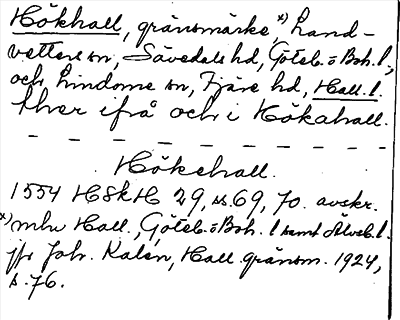 Hökhall, gränsmärke,*) Land-
vetters sn, Sävedals hd, Göteb. o Boh. l,
och Lindome sn, Fjäre hd, Hall. l.
ther ifrå och i Hökahall.
Hökehall.
1554 HSkH 29, s. 69, 70. avskr.
*) mlu Hall., Göteb. o Boh. l samt Älvsb. l.
jfr Joh. Kalén, Hall. gränsm. 1924,
s. 76.